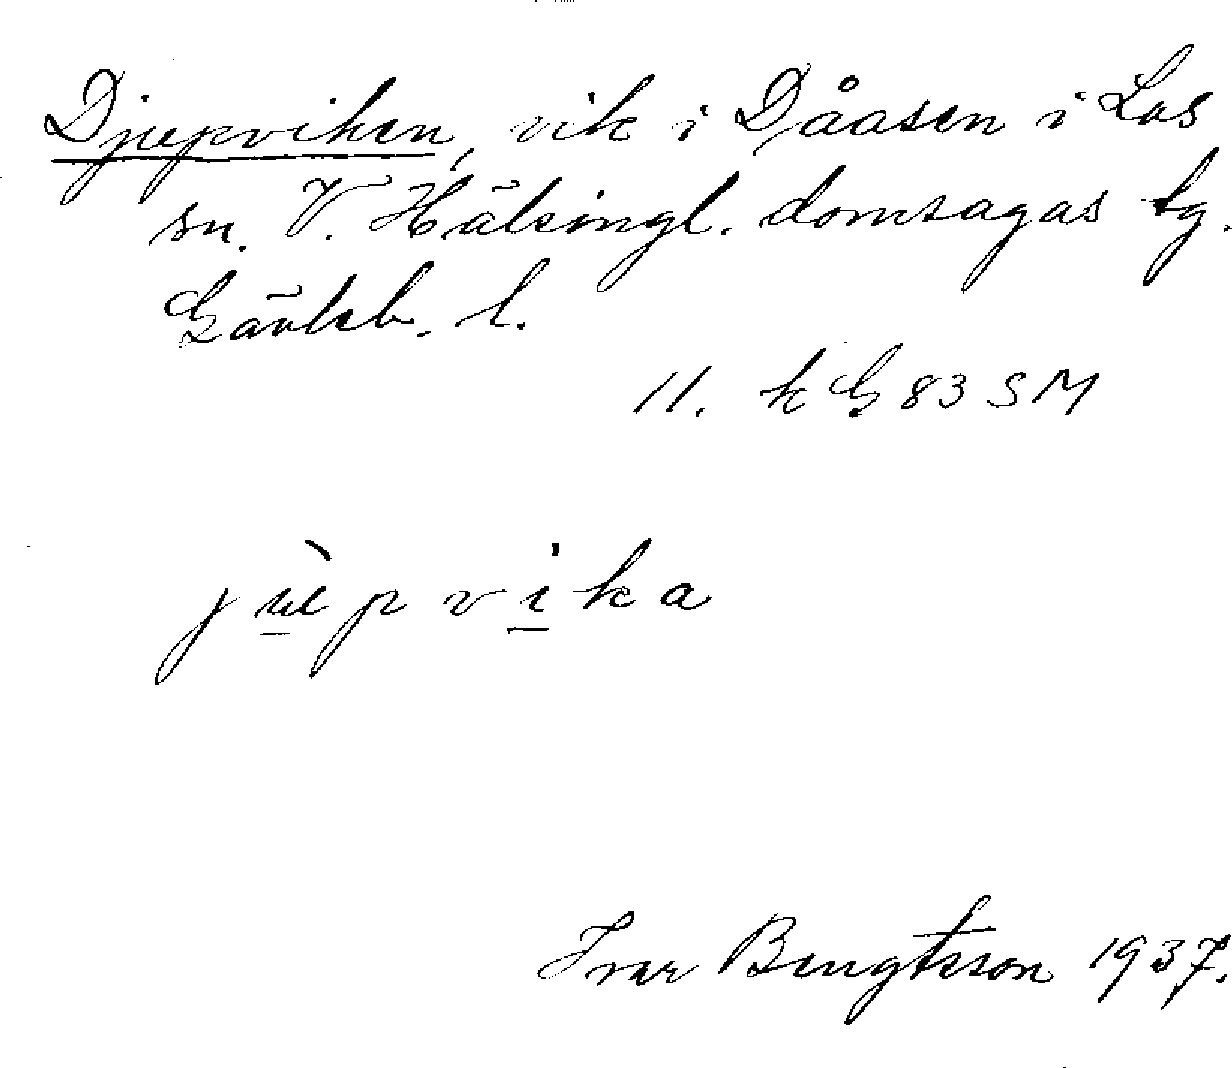 Djupviken, vik i Dåasen i Los
sn. V. Hälsingl. domsagas tg.
Gävleb. l.
11. k G 83 SM
Ivar Bengtsson 1937.